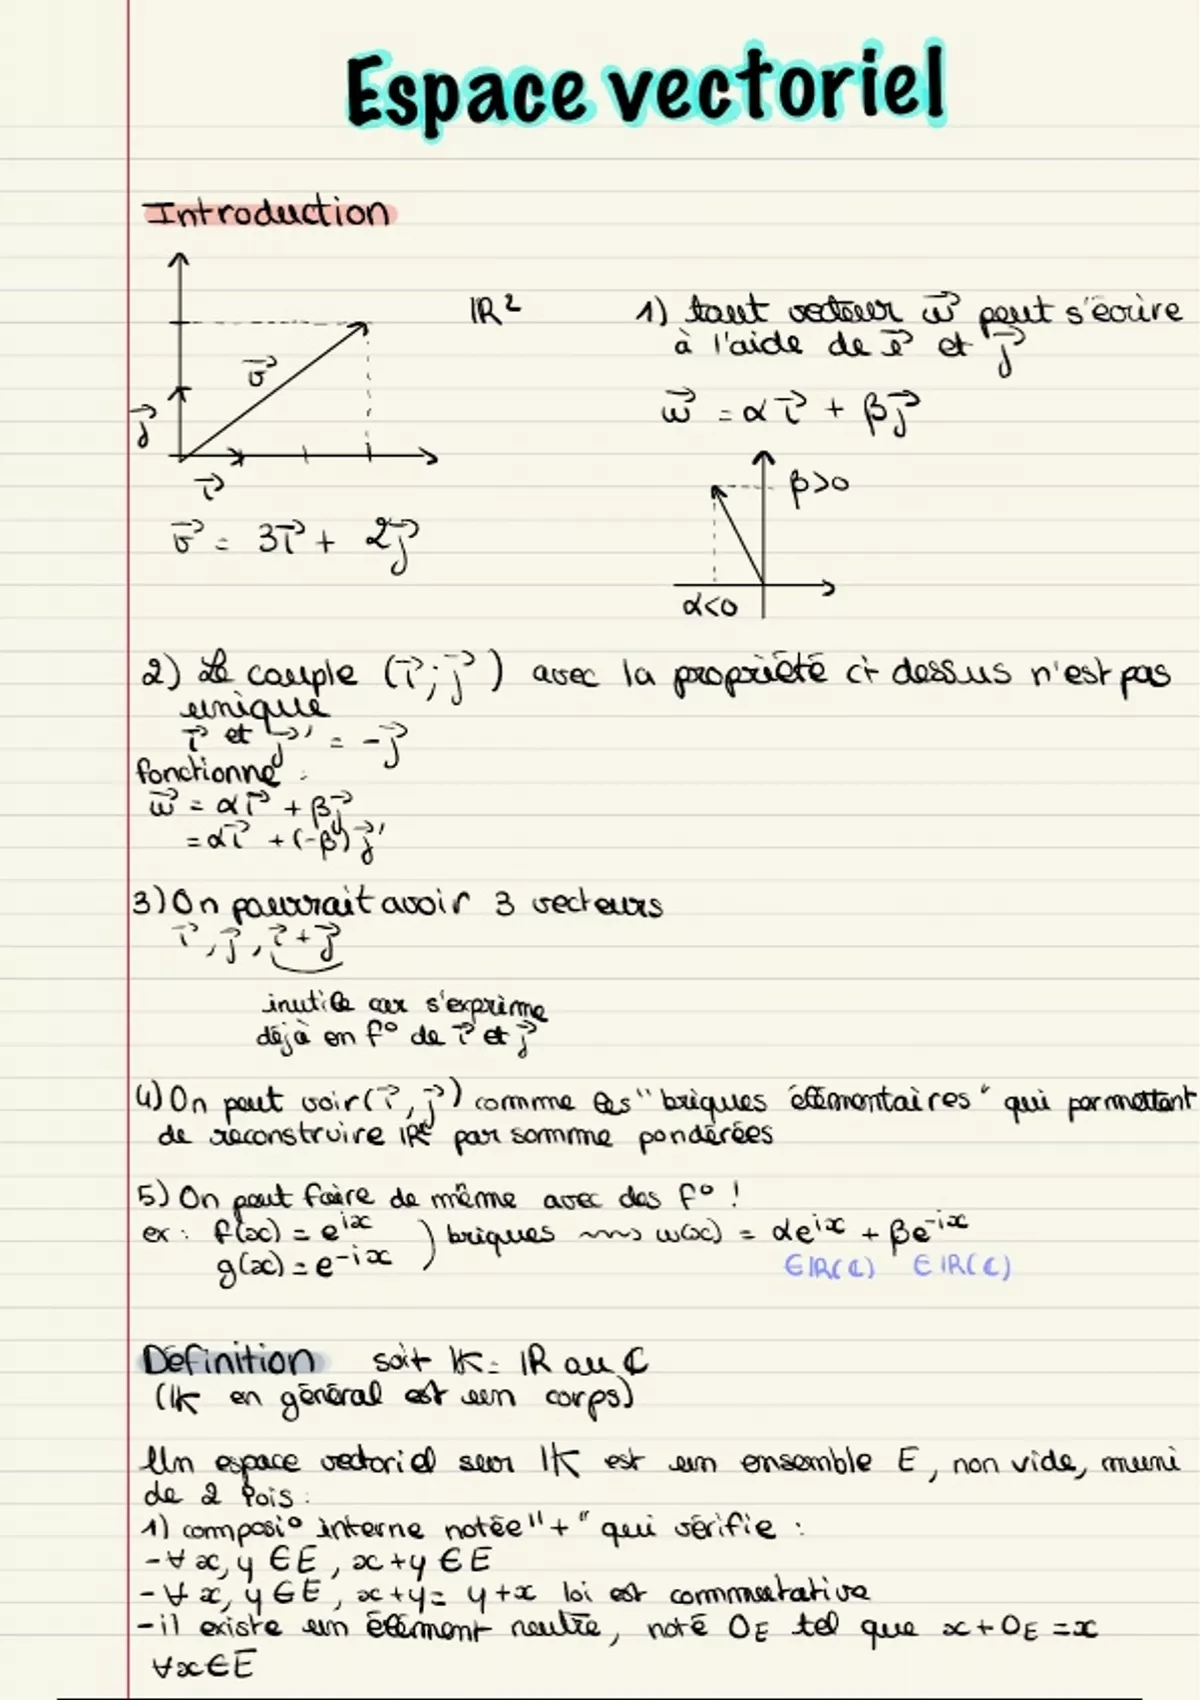 Espace vectoriel
Introduction
IR²
v⃗
j⃗
i⃗
v⃗ = 3i⃗ + 2j⃗
1) tout vecteur w⃗ peut s'écrire
à l'aide de i⃗ et j⃗
w⃗ = αi⃗ + βj⃗
β>0
α<0
2) Le couple (i⃗; j⃗) avec la propriété ci dessus n'est pas
unique
i⃗ et j⃗' = -j⃗
fonctionne :
w⃗ = αi⃗ + βj⃗
= αi⃗ + (-β) j⃗'
3) On pourrait avoir 3 vecteurs
i⃗, j⃗, i⃗+j⃗
inutile car s'exprime
déjà en f° de i⃗ et j⃗
4) On peut voir (i⃗, j⃗) comme les "briques élémentaires" qui permettent
de reconstruire IR² par somme pondérées
5) On peut faire de même avec des f° !
ex : f(x) = e^{ix} ) briques ⇝ w(x) = αe^{ix} + βe^{-ix}
g(x) = e^{-ix} ∈IR(ℂ) ∈IR(ℂ)
Définition soit IK = IR ou ℂ
(IK en général est un corps)
Un espace vectoriel sur IK est un ensemble E, non vide, muni
de 2 lois :
1) composi° interne notée "+" qui vérifie :
- ∀ x, y ∈ E, x+y ∈ E
- ∀ x, y ∈ E, x+y = y+x loi est commutative
- il existe un élément neutre, noté 0_E tel que x+0_E = x
∀x∈E